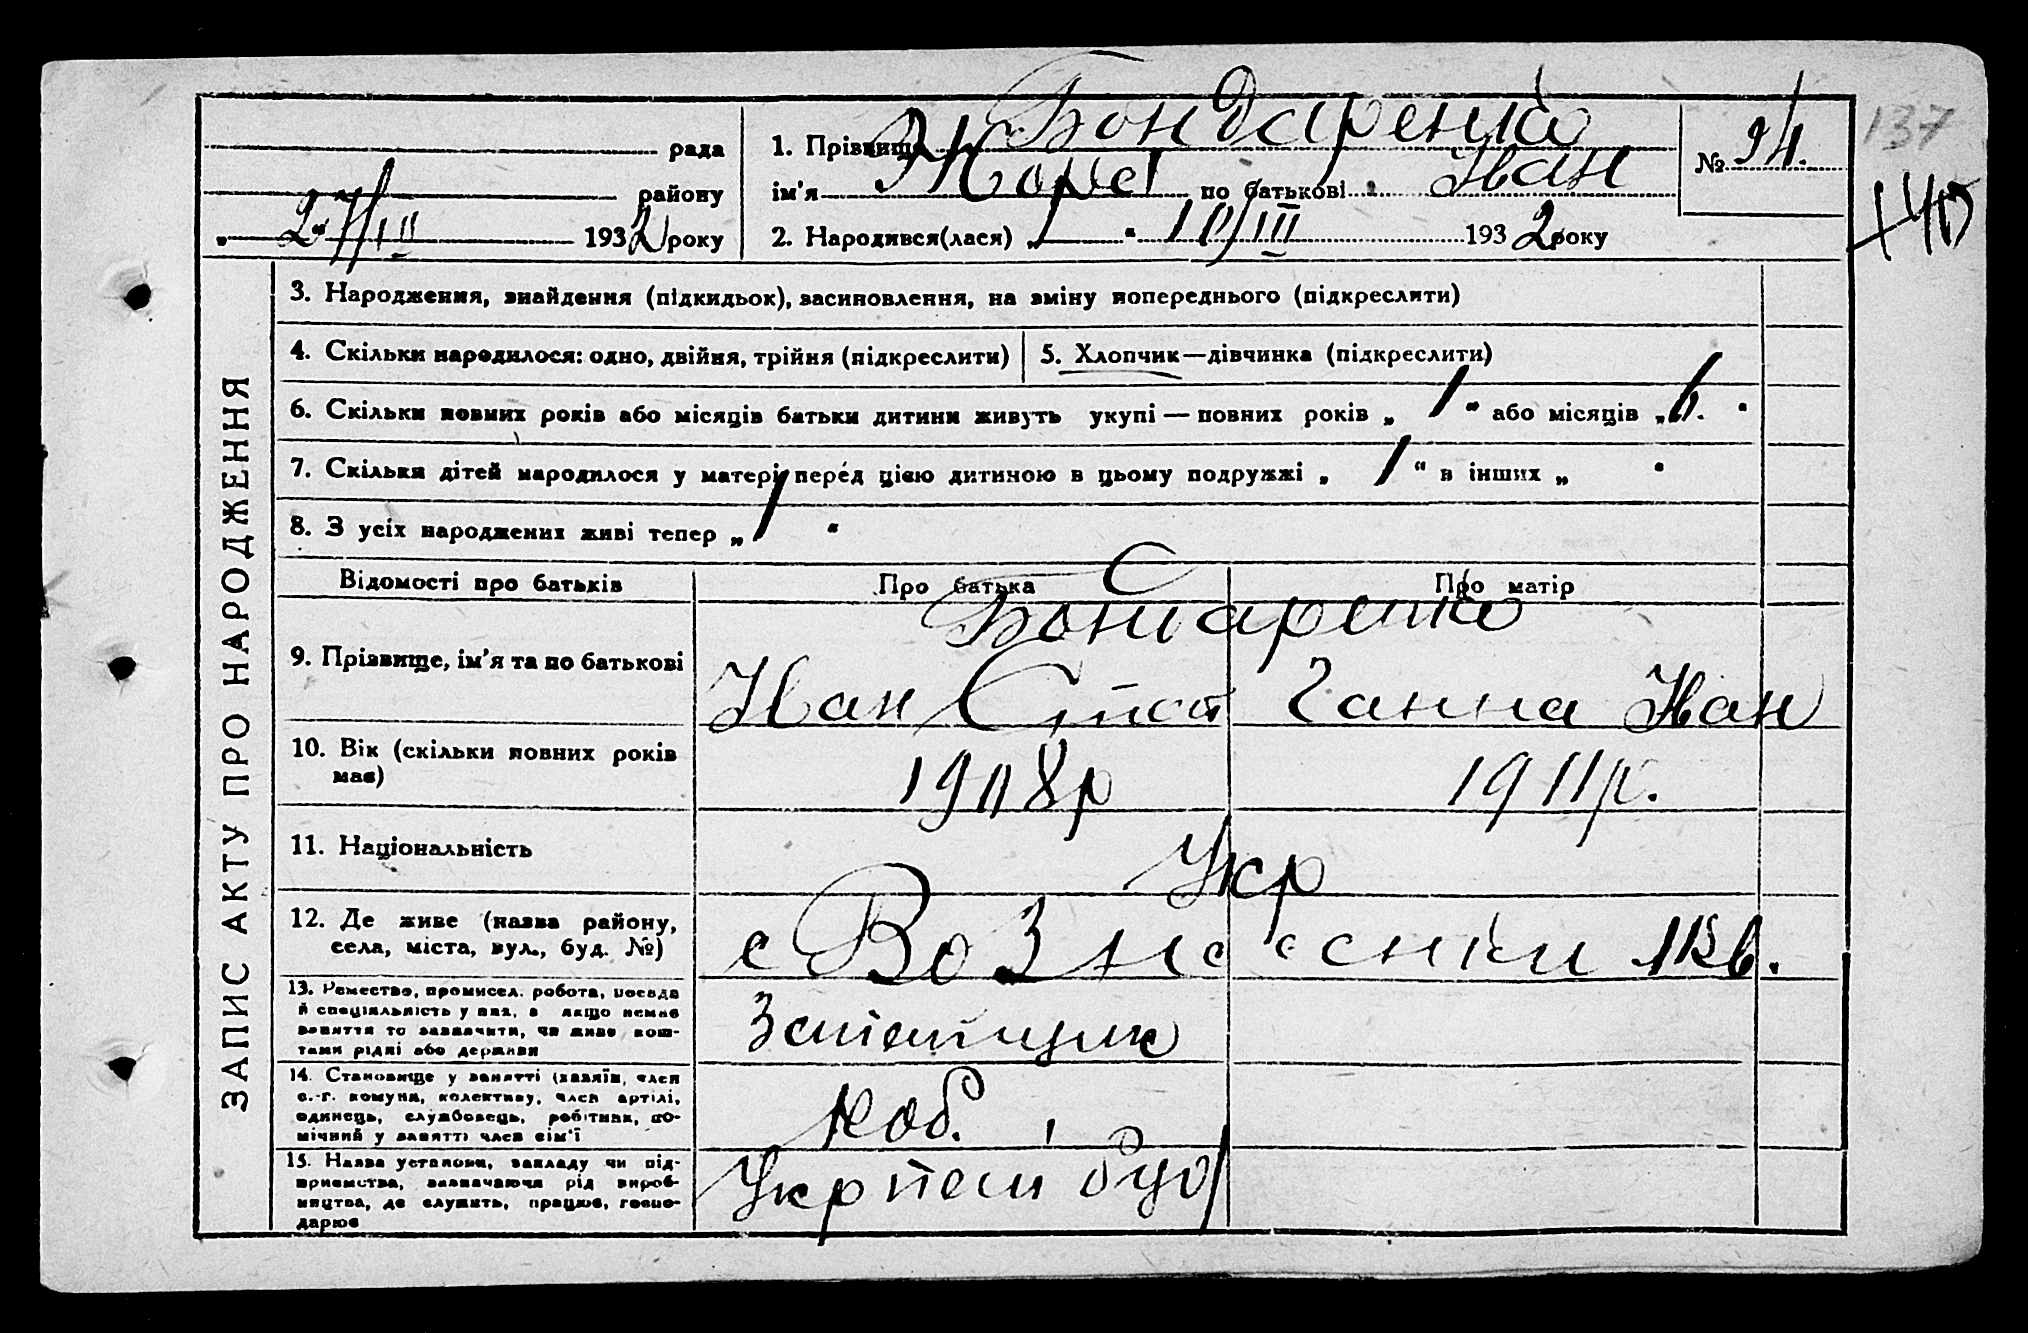 рада
району
„ 27/III 1932 року
1. Прізвище Бондаренко
ім'я Жорж по батькові Іван
2. Народився(лася) „ 10/III 1932 року
№ 94.
137
ЗАПИС АКТУ ПРО НАРОДЖЕННЯ
3. Народження, знайдення (підкидьок), засиновлення, на зміну попереднього (підкреслити)
4. Скільки народилося: одно, двійня, трійня (підкреслити)
5. Хлопчик—дівчинка (підкреслити)
6. Скільки повних років або місяців батьки дитини живуть укупі — повних років „ 1 " або місяців „ 6. "
7. Скільки дітей народилося у матері перед цією дитиною в цьому подружжі „ 1 " в інших „ "
8. З усіх народжених живі тепер „ 1 "
Відомості про батьків
Про батька
Про матір
9. Прізвище, ім'я та по батькові
Бондаренко
Иван Ганна Иван
10. Вік (скільки повних років
має)
1908р 1911р.
11. Національність
Укр
12. Де живе (назва району,
села, міста, вул., буд. №)
с Вознесенки
13. Ремество, промисел, робота, посада
й спеціяльність у них, а якщо немає
заняття то зазначити, чи живе кош-
тами рідні або держави
14. Становище у занятті (хазяїн, член
с.-г. комуни, колективу, член артілі,
одинець, службовець, робітник, по-
мічний у занятті член сім'ї
Роб.
15. Назва установи, закладу чи під-
приємства, зазначаючи рід вироб-
ництва, де служить, працює, госпо-
дарює